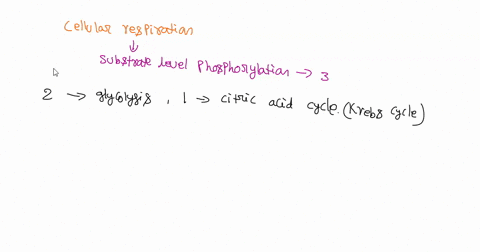 Cellular respiration
↓
Substrate level phosphorylation → 3
2 → glycolysis, 1 → citric acid cycle. (Krebs cycle)